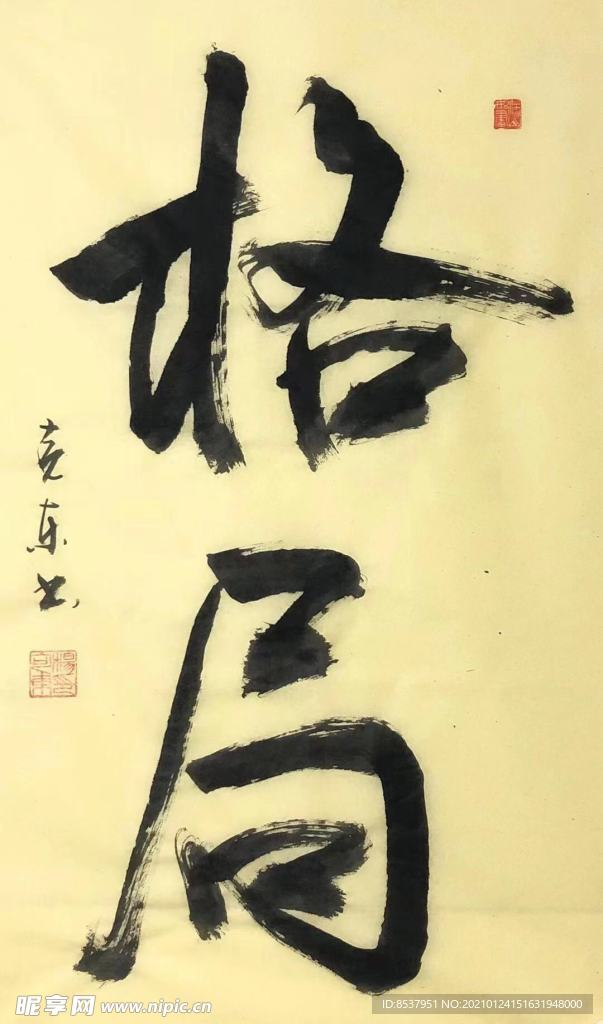 格局
克东书
昵享网 www.nipic.cn
ID:8537951 NO:20210124151631948000